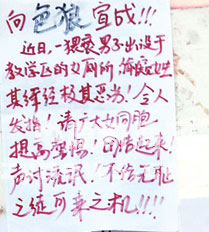 向色狼宣战!!!
近日,一猥亵男子出没于
教学区的女厕所,偷窥女生
其行径极其恶劣!令人
发指!请广大女同胞
提高警惕!团结起来!
声讨流氓!不给无耻
之徒可乘之机!!!!